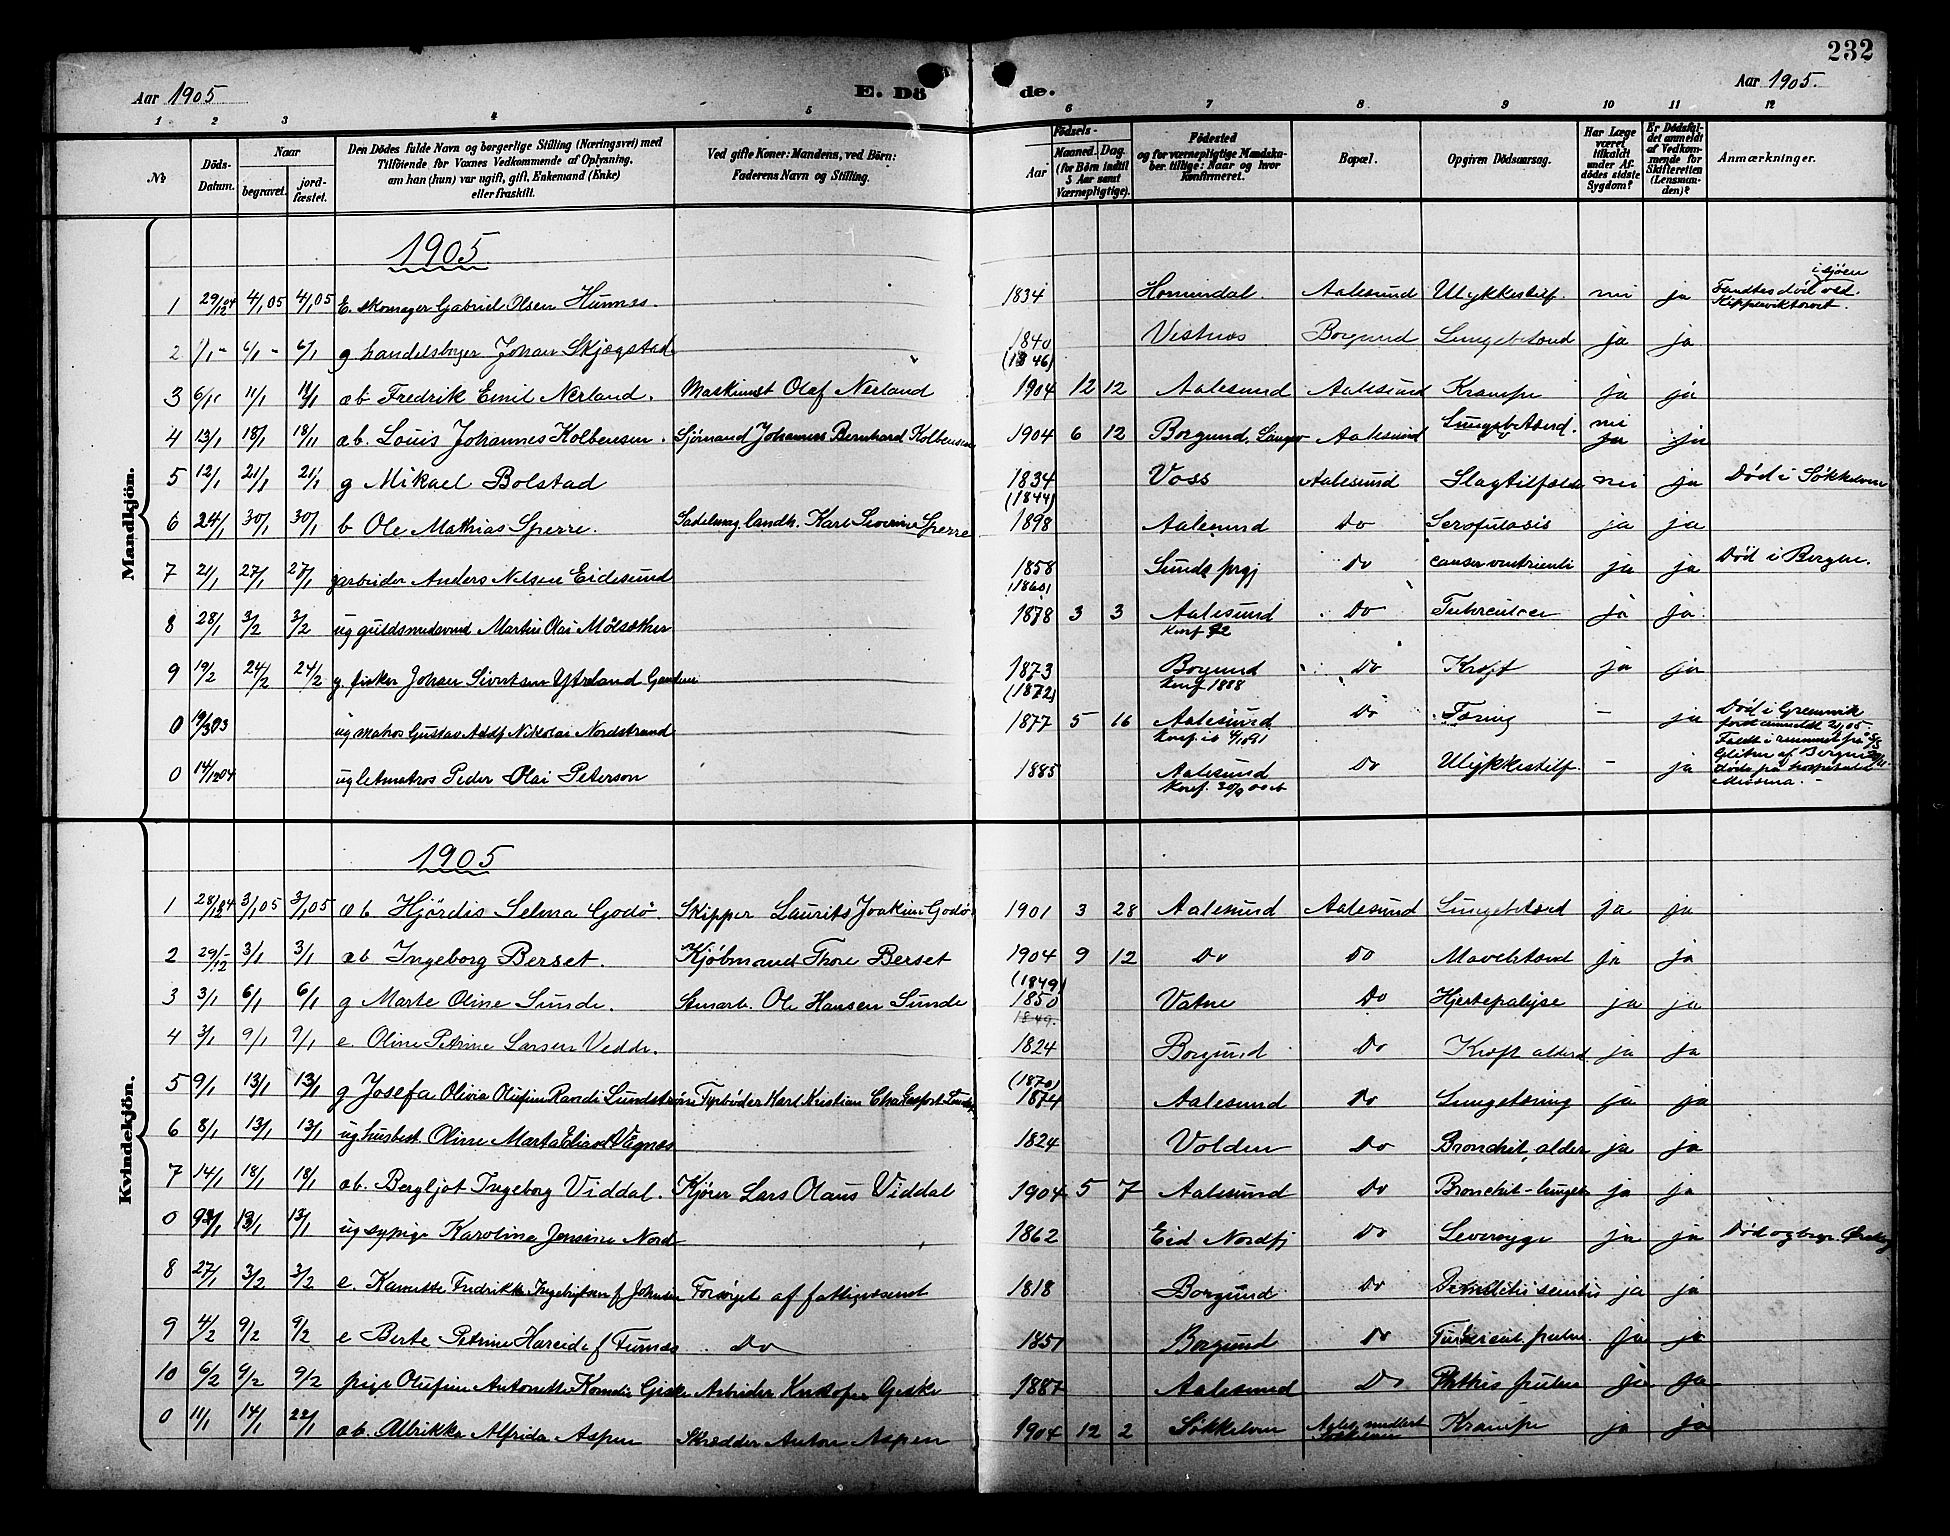 232
Aar 1905
E. Dö de.
Aar 1905.
1 2 3 4 5 6 7 8 9 10 11 12
№
Döds-Datum.
Naar
begravet.
jord-fæstet.
Den Dödes fulde Navn og borgerlige Stilling (Næringsvei) med
Tilföiende for Voxnes Vedkommende af Oplysning,
om han (hun) var ugift, gift, Enkemand (Enke)
eller fraskilt.
Ved gifte Koner: Mandens, ved Börn:
Faderens Navn og Stilling.
Födsels-
Aar
Maaned. Dag.
(for Börn indtil
5 Aar samt
Værnepligtige).
Födested
og for værnepligtige Mandska-
ber tillige: Naar og hvor
konfirmeret.
Bopæl.
Opgiven Dödsaarsag.
Har Læge
været
tilkaldt
under Af-
dödes sidste
Sygdom?
Er Dödsfal-
det anmeldt
af Vedkom-
mende for
Skifteretten
(Lensman-
den)?
Anmærkninger.
Mandkjön.
1905
1 29/12 04 4/1 05 4/1 05 E. skomager Gabriel Olsen Humes. 1834 Hornindal. Aalesund Ulykkestilf. nei ja Fandtes død i sjøen ved
2 1/1 - 6/1 - 6/1 g handelsborger Johan Skjegstad 1840 (1846) Vestnes Borgund Lungebetænd ja ja
3 6/1 11/1 11/1 æb Fredrik Emil Nerland. Maskinist Olaf Nerland 1904 12 12 Aalesund Aalesund Krampe ja ja
4 13/1 18/1 18/1 æb. Louis Johannes Kolbensen. Sjømand Johannes Bernhard Kolbensen 1904 6 12 Borgund, Aalesund Lungebetænd. nei ja ja
5 12/1 21/1 21/1 g Mikael Bolstad 1834 (1844) Voss Aalesund Slagtilfælde nei ja Død i Søkkelven
6 24/1 30/1 30/1 b Ole Mathias Sperre. Sadelmag landh. Karl Severin Sperre 1898 Aalesund Do Scrofulosis ja ja
7 21/1 27/1 27/1 g arbeider Anders Nelsen Eidesund 1858 (1860) Sunds prgj Do cancer ventriculi ja ja Død i Bergen.
8 28/1 3/2 3/2 ug guldsmedsvend Martin Olai Molsæther 1878 3 3 Aalesund Do Tuberculose ja ja
konf 92
9 19/2 24/2 24/2 g. fisker Johan Sivertsen Ytreland 1873 (1872) Borgund Do Kræft ja ja
konf 1888
0 19/3 03 ug matros Gustav Adolf Nikolai Nordstrand 1877 5 16 Aalesund Do Tæring - ja Død i Greenwik
0 14/12 04 ug letmatros Peder Olai Peterson 1885 Aalesund Do Ulykkestilf. - ja Faldt i rummet på
af Bergen
døde på hospitalet
i Messina. -
Kvindekjön.
1905
1 28/12 04 3/1 05 3/1 05 æb Hjördis Selma Godø. Skipper Laurits Joakim Godø 1901 3 28 Aalesund Aalesund Lungebetænd ja ja
2 29/12 3/1 3/1 æb Ingeborg Berset. Kjøbmand Thore Berset 1904 9 12 Do Do Mavebetænd ja ja
3 3/1 6/1 6/1 g Marte Oline Sunde. Stenarb. Ole Hansen Sunde (1849) 1850 1849. Vatne Do Hjertepalyse ja ja
4 3/1 9/1 9/1 e. Oline Petrine Larsen Vedde. 1824 Borgund Do Kræft alderd ja ja
5 9/1 13/1 13/1 g Josefa Olivia Olufine Randi Lundstrøm Fyrbøder Karl Kristian (1870) 1874 Aalesund Do Lungetæring ja ja
6 8/1 13/1 13/1 ug husbest. Oline Marta Vagnes 1824 Volden Do Bronchit, alder ja ja
7 14/1 18/1 18/1 æb. Bergljot Ingeborg Viddal. Kjører Lars Olaus Viddal 1904 5 7 Aalesund Do Bronchit-lungeb ja ja
0 9/1 13/1 13/1 ug sypige Karolina Jensine Nord 1862 Eid Nordfj Do Leversyge ja ja Død og begr.
8 27/1 3/2 3/2 e. Fredrikke f Johnsen Forsørget af fattigvæsenet 1818 Borgund Do senilis ja ja
9 4/2 9/2 9/2 e Berte Petrine Hareide f Furnes Do 1851 Borgund Do Tubercul. pulm. ja ja
10 6/2 9/2 9/2 pige Olufine Antonette Kornelie Giske Arbeider Kristofer Giske 1887 Aalesund Do Phthis pulm ja ja
0 11/1 14/1 22/1 æb. Albrikke Alfrida Aspen Skrædder Anton Aspen 1904 12 2 Søkkelven Krampe ja ja